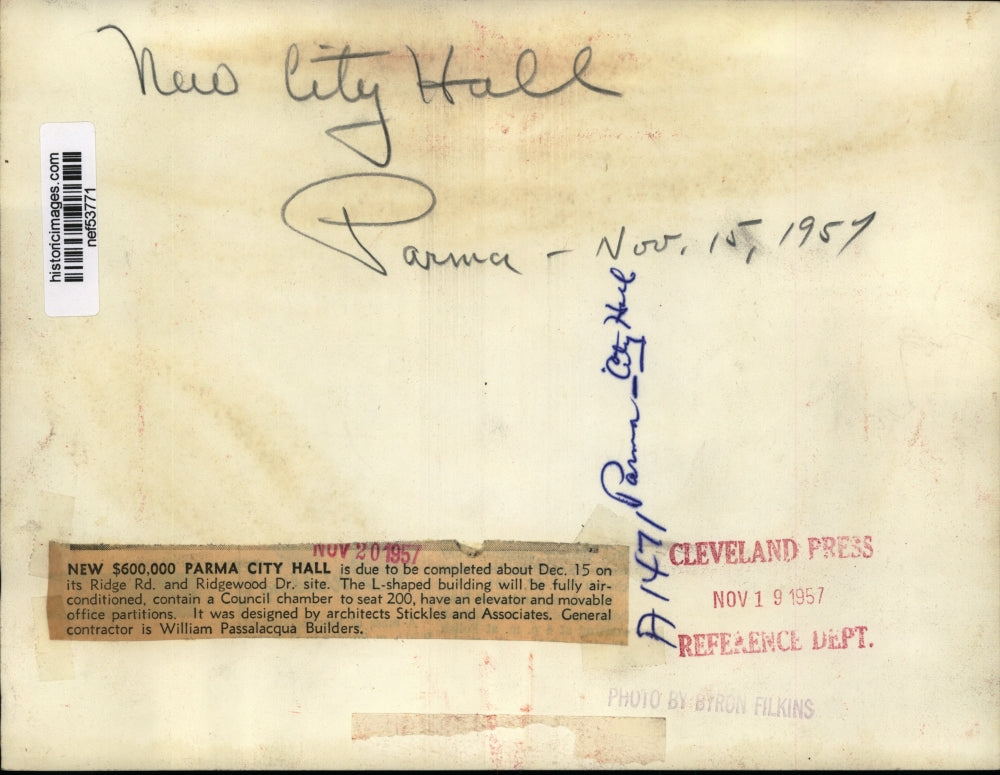 New City Hall
Parma - Nov. 15, 1957
historicimages.com
nef53771
A1471 Parma - City Hall
NOV 20 1957
NEW $600,000 PARMA CITY HALL is due to be completed about Dec. 15 on
its Ridge Rd. and Ridgewood Dr. site. The L-shaped building will be fully air-
conditioned, contain a Council chamber to seat 200, have an elevator and movable
office partitions. It was designed by architects Stickles and Associates. General
contractor is William Passalacqua Builders.
CLEVELAND PRESS
NOV 19 1957
REFERENCE DEPT.
PHOTO BY BYRON FILKINS